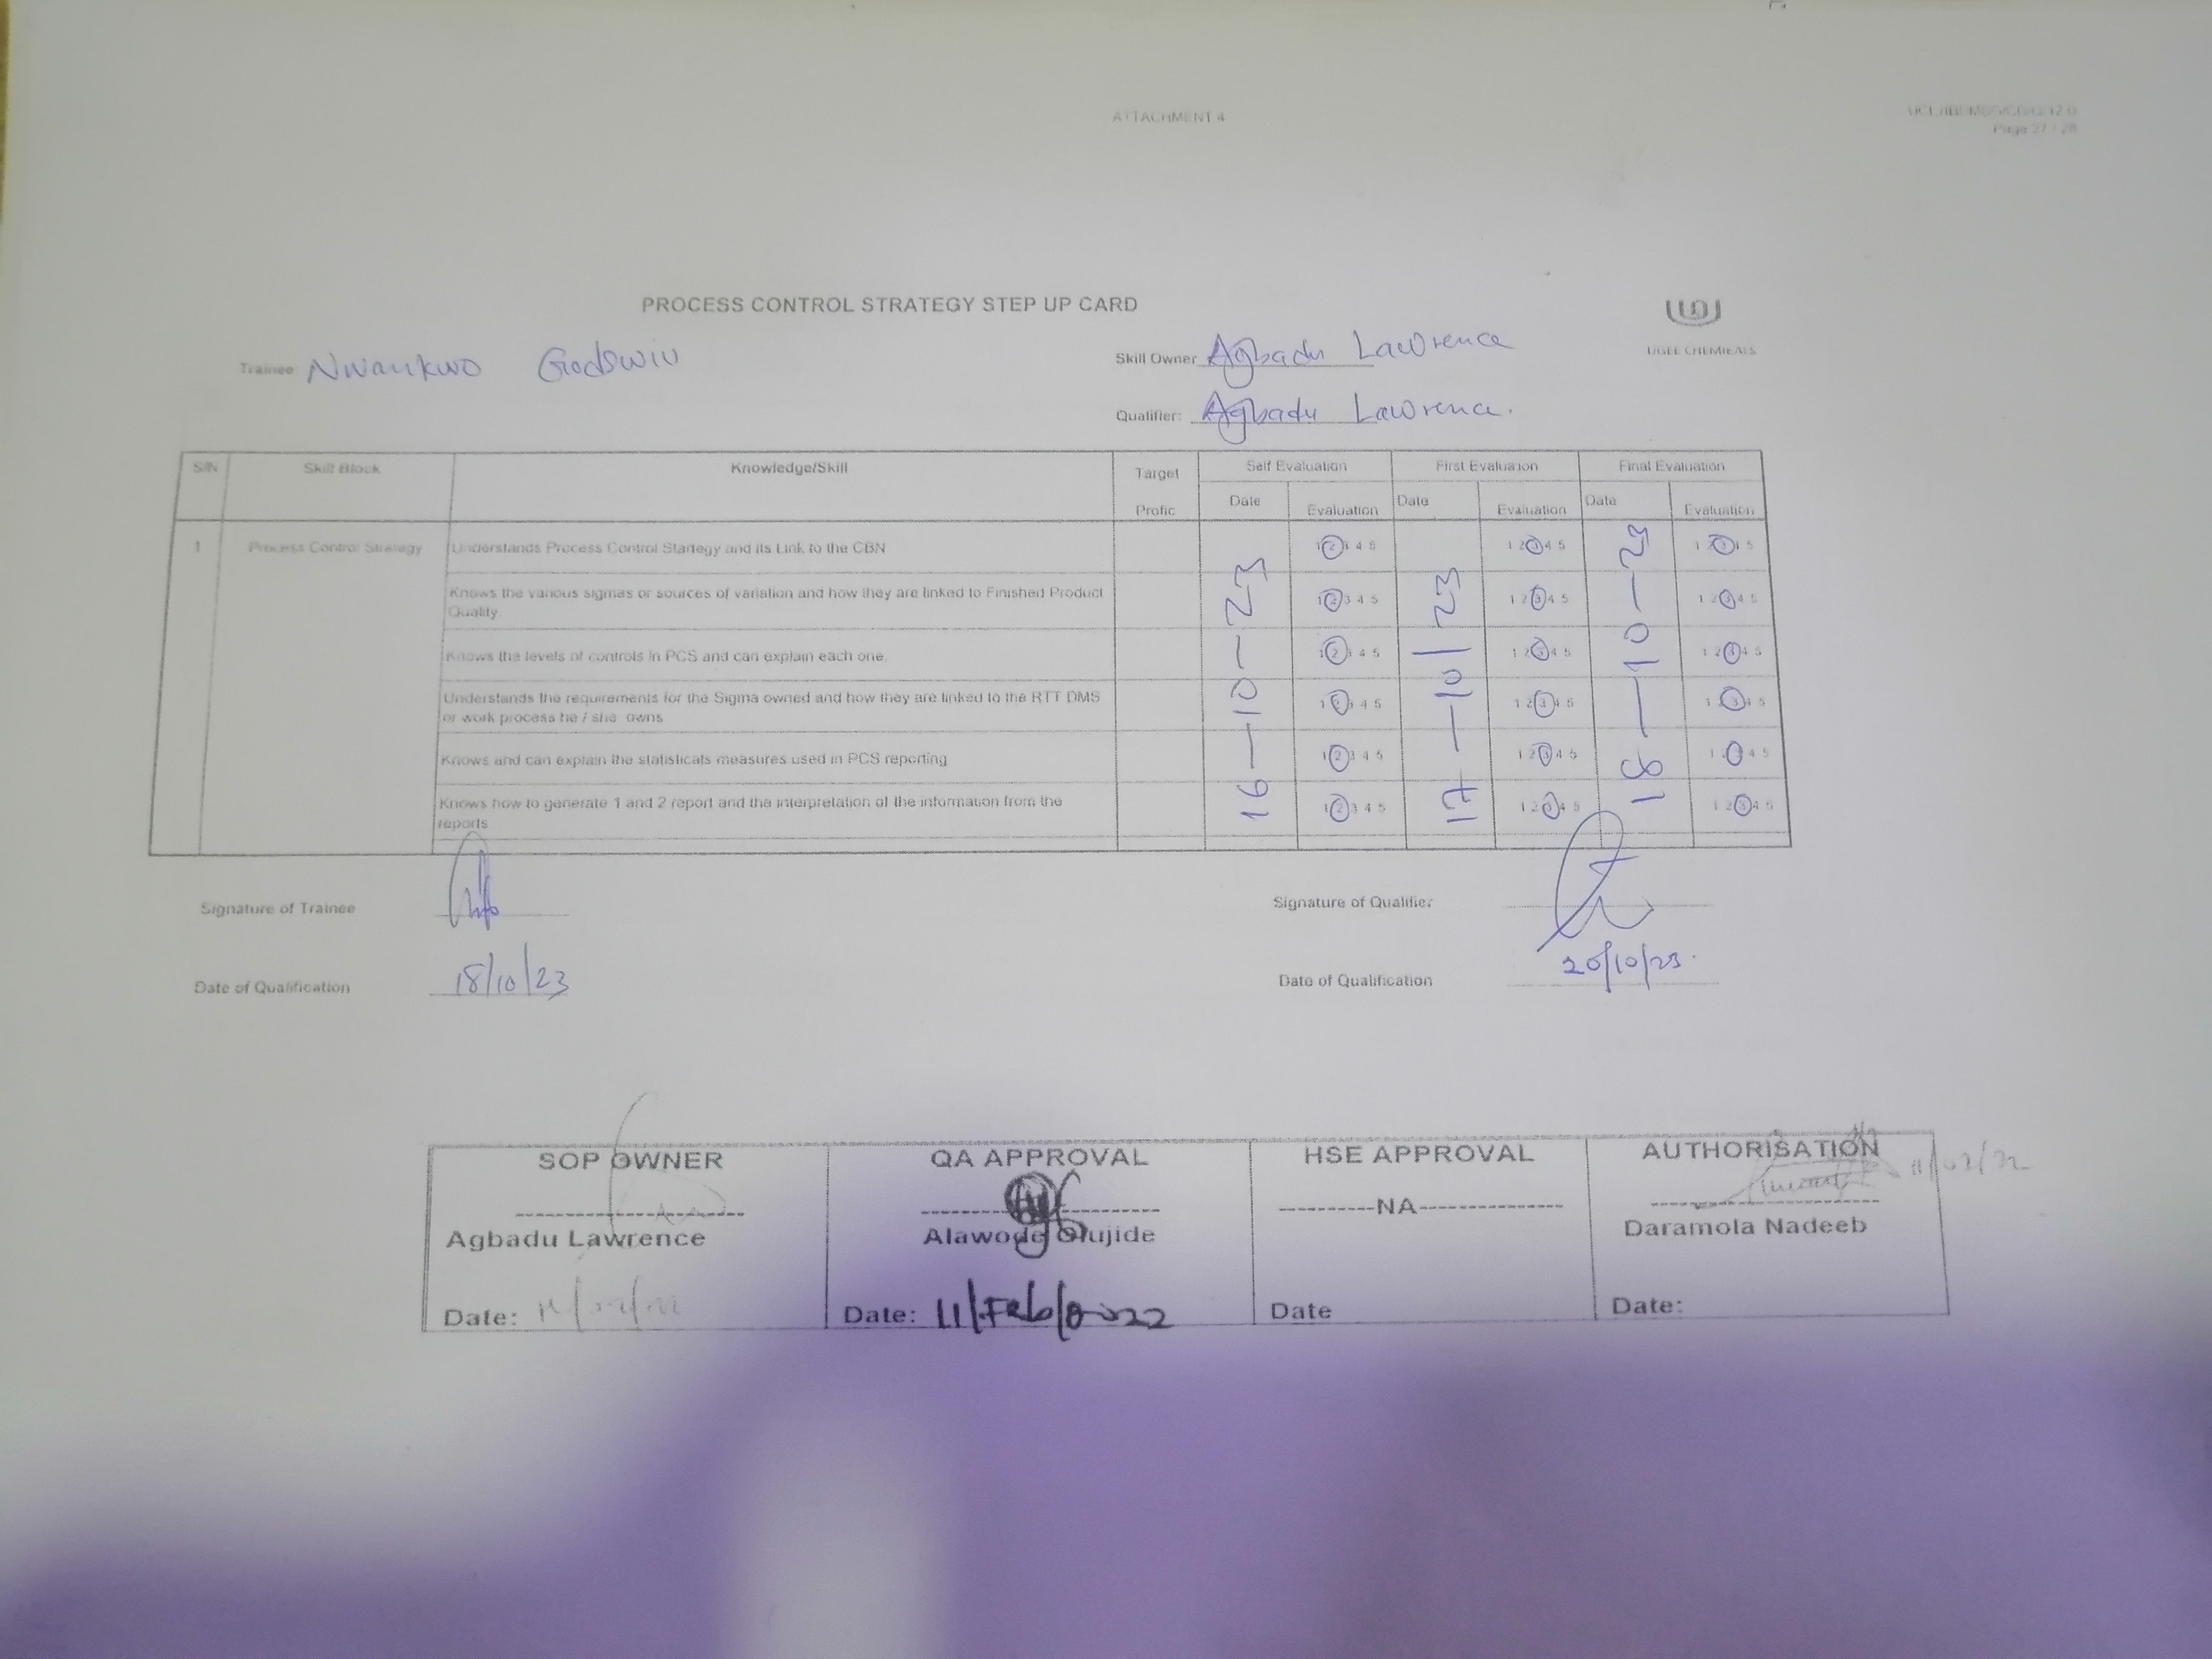 ATTACHMENT 4
Page 27 / 28
PROCESS CONTROL STRATEGY STEP UP CARD
UGEE CHEMICALS
Trainee: Nwankwo Godswin
Skill Owner Agbadu Lawrence
Qualifier: Agbadu Lawrence.
S/N Skill Block Knowledge/Skill Target Profic Self Evaluation First Evaluation Final Evaluation
Date Evaluation Date Evaluation Date Evaluation
1 Process Control Strategy Understands Process Control Startegy and its Link to the CBN 1 2 3 4 5 1 2 3 4 5 1 2 3 4 5
Knows the various sigmas or sources of variation and how they are linked to Finished Product
Quality. 1 2 3 4 5 1 2 3 4 5 1 2 3 4 5
Knows the levels of controls in PCS and can explain each one. 1 2 3 4 5 1 2 3 4 5 1 2 3 4 5
Understands the requirements for the Sigma owned and how they are linked to the RTT DMS
or work process he / she owns 1 2 3 4 5 1 2 3 4 5 1 2 3 4 5
Knows and can explain the statisticals measures used in PCS reporting 1 2 3 4 5 1 2 3 4 5 1 2 3 4 5
Knows how to generate 1 and 2 report and the interpretation of the information from the
reports 1 2 3 4 5 1 2 3 4 5 1 2 3 4 5
16-10-23
17-10/23
Signature of Trainee
Signature of Qualifier
Date of Qualification 18/10/23
Date of Qualification 20/10/23.
SOP OWNER QA APPROVAL HSE APPROVAL AUTHORISATION
----------NA---------------
11/02/22
Agbadu Lawrence Alawode Olujide Daramola Nadeeb
Date: 11/02/22 Date: 11/Feb/2022 Date Date: